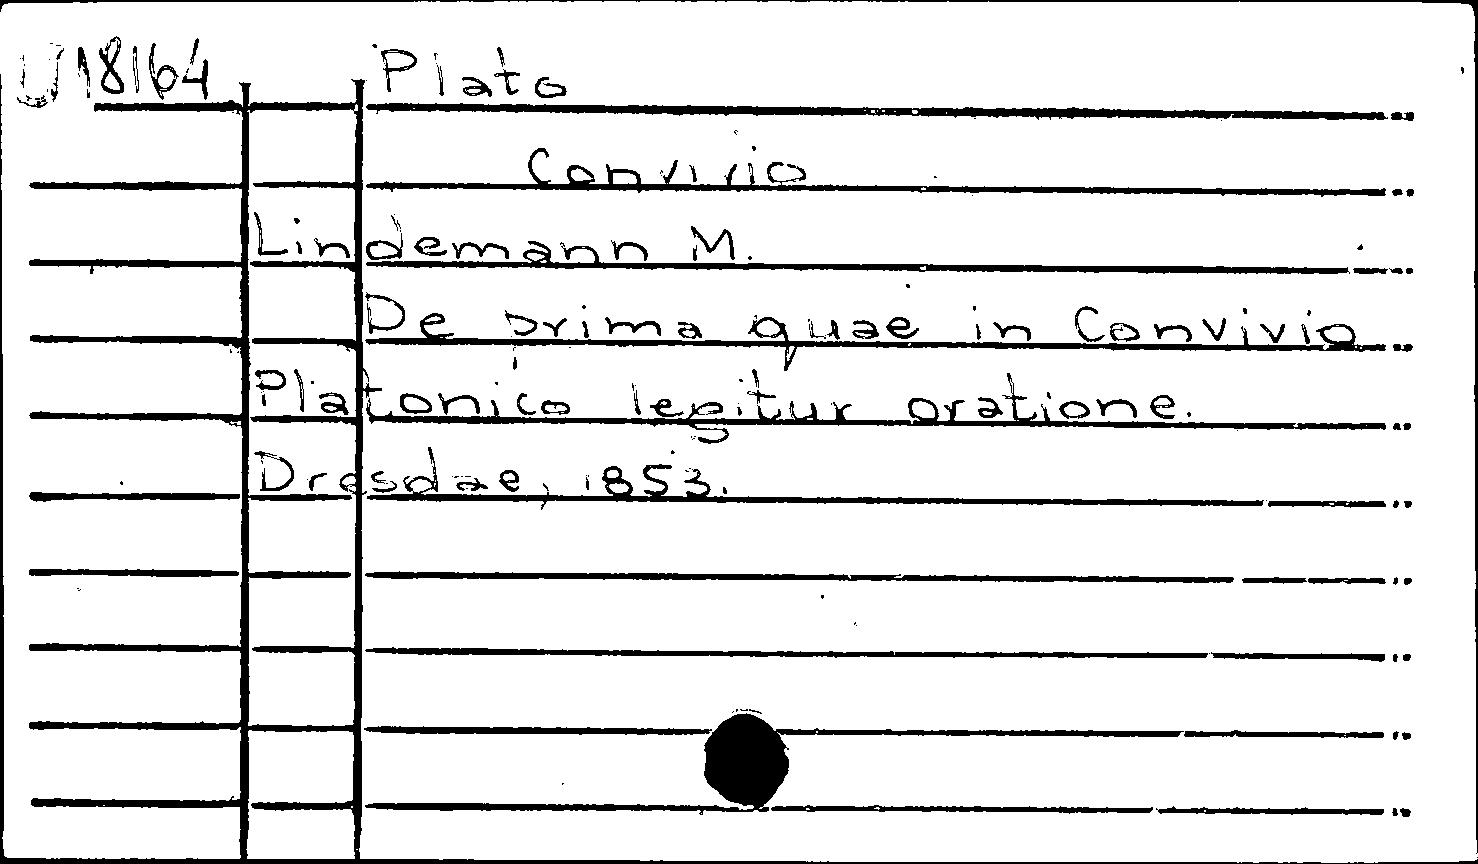 U 18164 Plato
Convivio
Lindemann M.
De prima quae in Convivio
Platonico legitur oratione.
Dresdae, 1853.